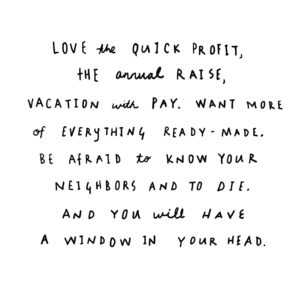 LOVE the QUICK PROFIT,
tHE annual RAISE,
VACATION with PAY. WANT MORE
of EVERYTHING READY-MADE.
BE AfRAID to KNOW YOUR
NEIGHBORS AND TO DIE.
AND YOU will HAVE
A WINDOW IN YOUR HEAD.